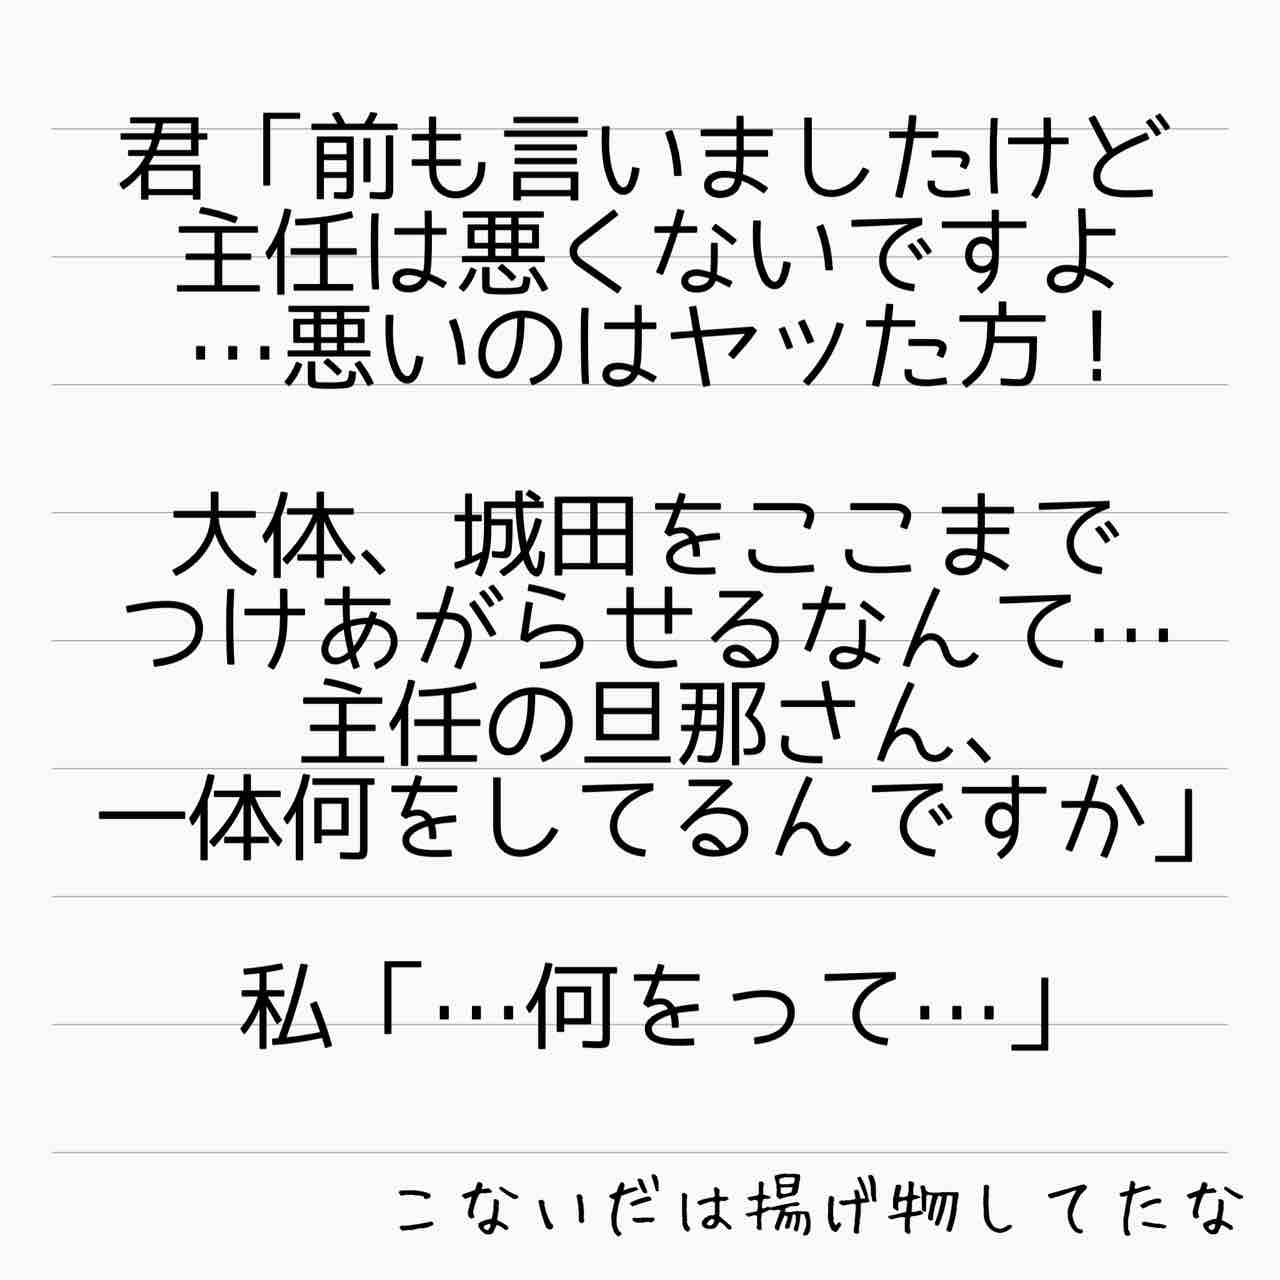 君「前も言いましたけど
主任は悪くないですよ
…悪いのはヤッた方！
大体、城田をここまで
つけあがらせるなんて…
主任の旦那さん、
一体何をしてるんですか」
私「…何をって…」
こないだは揚げ物してたな